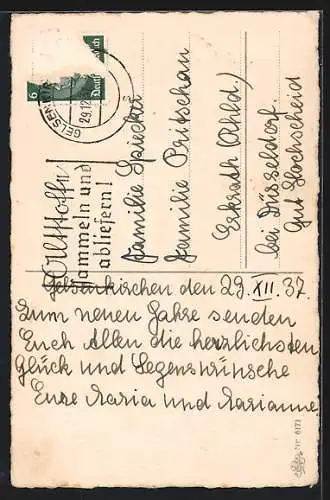 6
Deutsches Reich
GELSENKIRCHEN
29.12
Altstoffe
sammeln und
abliefern!
Familie Spieker
Familie Pritschau
Erkrath (Rhld.)
bei Düsseldorf.
Gut Hochscheid
Gelsenkirchen den 29. XII. 37.
Zum neuen Jahre senden
Euch Allen die herzlichsten
Glück und Segenswünsche
Eure Maria und Marianne.
Nr. 6171